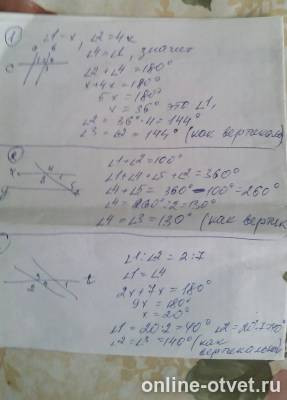 ① ∠1 - x, ∠2 = 4x
a b
c
∠4 = ∠1, значит
∠2 + ∠4 = 180°
x + 4x = 180°
5x = 180°
x = 36° это ∠1,
∠2 = 36° · 4 = 144°
∠3 = ∠2 = 144° (как вертикал
②
∠1 + ∠2 = 100°
∠1 + ∠4 + ∠5 + ∠2 = 360°
∠4 + ∠5 = 360° - 100° = 260°
∠4 = 260° : 2 = 130°
∠4 = ∠3 = 130° (как вертик
∠1 : ∠2 = 2 : 7
∠1 = ∠4
2x + 7x = 180°
9x = 180°
x = 20°
∠1 = 20 · 2 = 40° ∠2 = 20° · 7 = 140°
∠2 = ∠3 = 140° (как
вертикальной)
online-otvet.ru